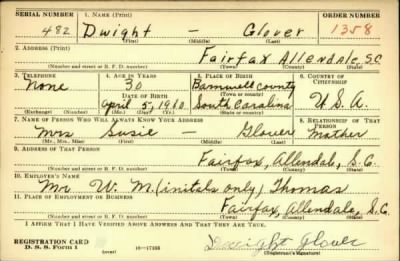 SERIAL NUMBER 1. NAME (Print) ORDER NUMBER
482 Dwight — Glover 1358
(First) (Middle) (Last)
2. ADDRESS (Print)
Fairfax Allendale, S.C.
(Number and street or R. F. D. number) (Town) (County) (State)
3. TELEPHONE 4. AGE IN YEARS 5. PLACE OF BIRTH 6. COUNTRY OF CITIZENSHIP
None 30 Barnwell county
DATE OF BIRTH (Town or county)
April 5, 1910 South Carolina U.S.A.
(Exchange) (Number) (Mo.) (Day) (Yr.) (State or country)
7. NAME OF PERSON WHO WILL ALWAYS KNOW YOUR ADDRESS 8. RELATIONSHIP OF THAT PERSON
Mrs Susie — Glover Mother
(Mr., Mrs., Miss) (First) (Middle) (Last)
9. ADDRESS OF THAT PERSON
Fairfax, Allendale, S.C.
(Number and street or R. F. D. number) (Town) (County) (State)
10. EMPLOYER'S NAME
Mr. W. M. (initals only) Thomas
11. PLACE OF EMPLOYMENT OR BUSINESS
Fairfax, Allendale, S.C.
(Number and street or R. F. D. number) (Town) (County) (State)
I AFFIRM THAT I HAVE VERIFIED ABOVE ANSWERS AND THAT THEY ARE TRUE.
REGISTRATION CARD
D. S. S. Form 1 16—17105 Dwight Glover
(Registrant's signature)